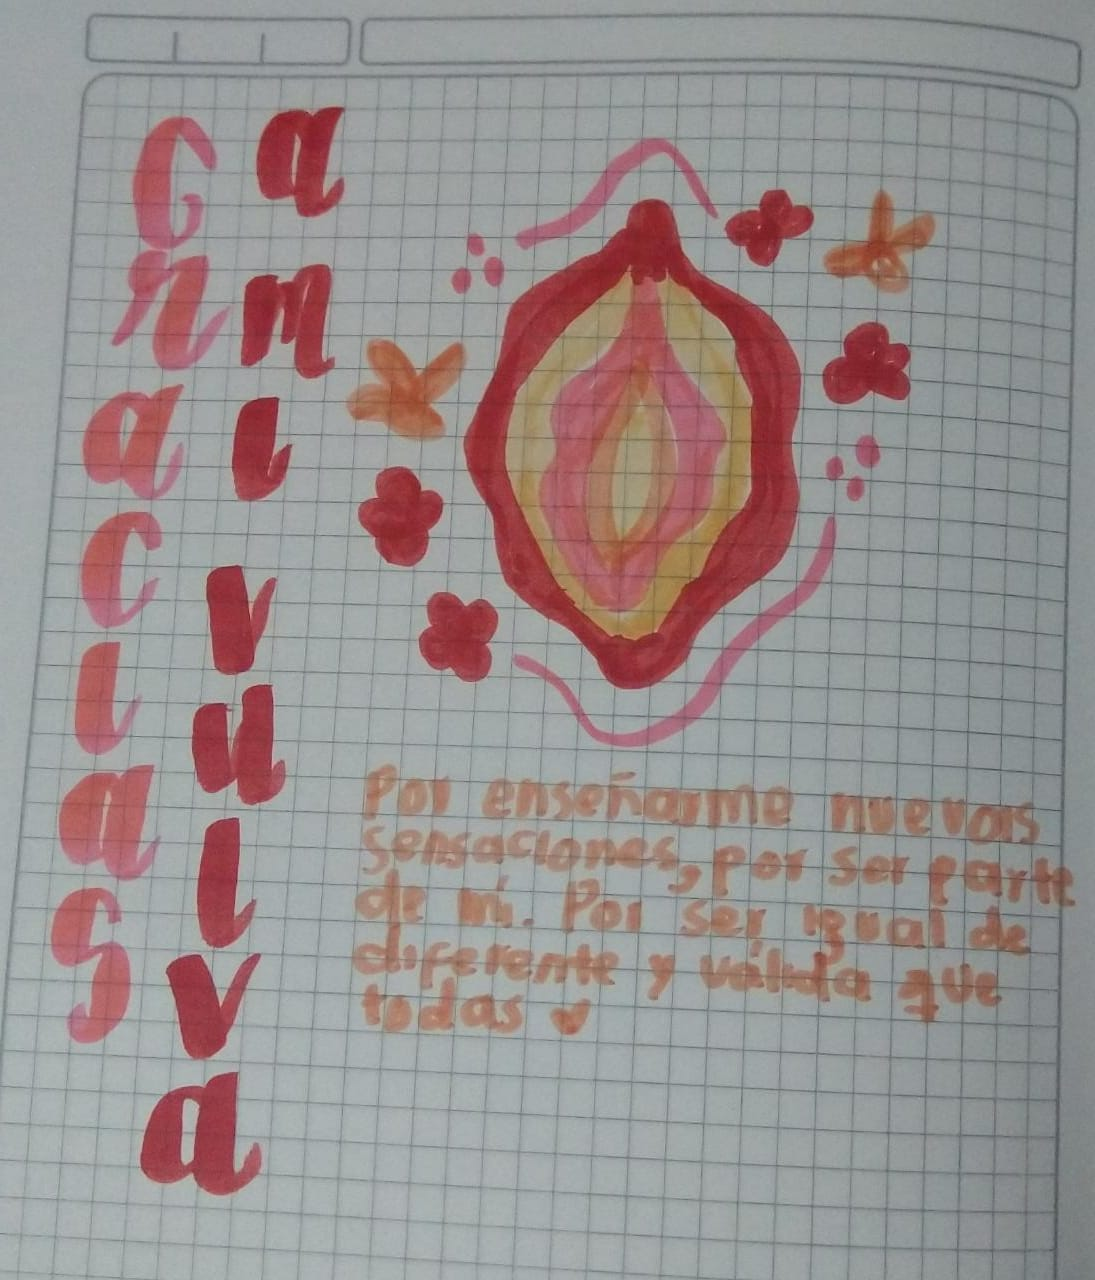 Gracias
a mi vulva
Por enseñarme nuevas
sensaciones, por ser parte
de mí. Por ser igual de
diferente y válida que
todas